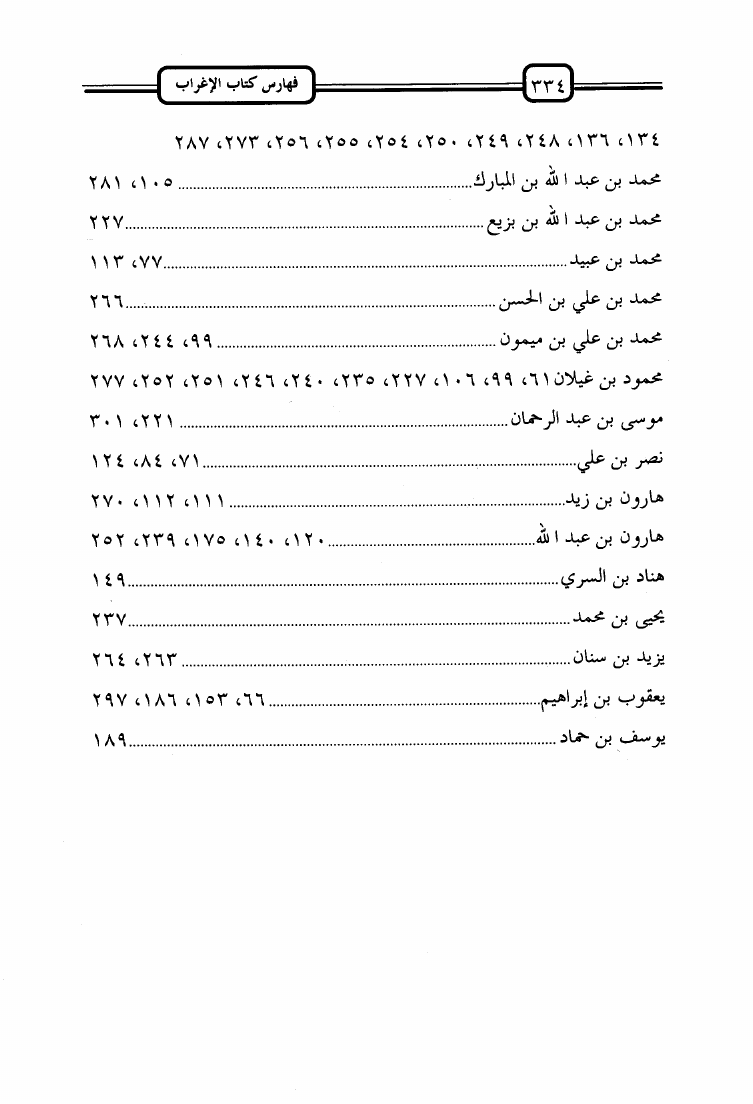 ٣٣٤ فهارس كتاب الإغراب
١٣٤، ١٣٦، ٢٤٨، ٢٤٩، ٢٥٠، ٢٥٤، ٢٥٥، ٢٥٦، ٢٧٣، ٢٨٧
محمد بن عبد الله بن المبارك ١٠٥، ٢٨١
محمد بن عبد الله بن بزيع ٢٢٧
محمد بن عبيد ٧٧، ١١٣
محمد بن علي بن الحسن ٢٦٦
محمد بن علي بن ميمون ٩٩، ٢٤٤، ٢٦٨
محمود بن غيلان ٦١، ٩٩، ١٠٦، ٢٢٧، ٢٣٥، ٢٤٠، ٢٤٦، ٢٥١، ٢٥٢، ٢٧٧
موسى بن عبد الرحمان ٢٢١، ٣٠١
نصر بن علي ٧١، ٨٤، ١٢٤
هارون بن زيد ١١١، ١١٢، ٢٧٠
هارون بن عبد الله ١٢٠، ١٤٠، ١٧٥، ٢٣٩، ٢٥٢
هناد بن السري ١٤٩
يحيى بن محمد ٢٣٧
يزيد بن سنان ٢٦٣، ٢٦٤
يعقوب بن إبراهيم ٦٦، ١٥٣، ١٨٦، ٢٩٧
يوسف بن حماد ١٨٩